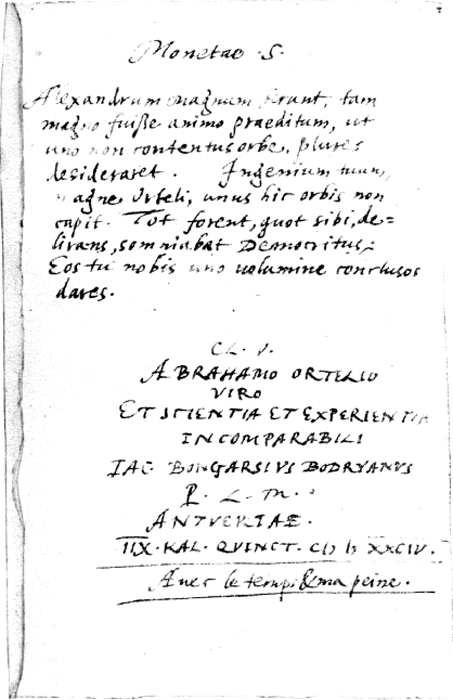 Monetae · S ·
Alexandrum magnum ferunt, tam
magno fuisse animo praeditum, ut
uno non contentus orbe, plures
desideraret. Ingenium tuum,
magne Orteli, unus hic orbis non
capit. Tot forent, quot sibi, de=
lirans, somniabat Democritus,
Eos tu nobis uno uolumine conclusos
dares.
CL. V.
ABRAHAMO ORTELIO
VIRO
ET SCIENTIA ET EXPERIENTIA
INCOMPARABILI
IAC BONGARSIVS BODRYANVS
P. L. M.
ANTVERTIAE.
IIX · KAL · QVINCT. CIↃ IↃ XXCIV.
Auec le temps & ma peine.